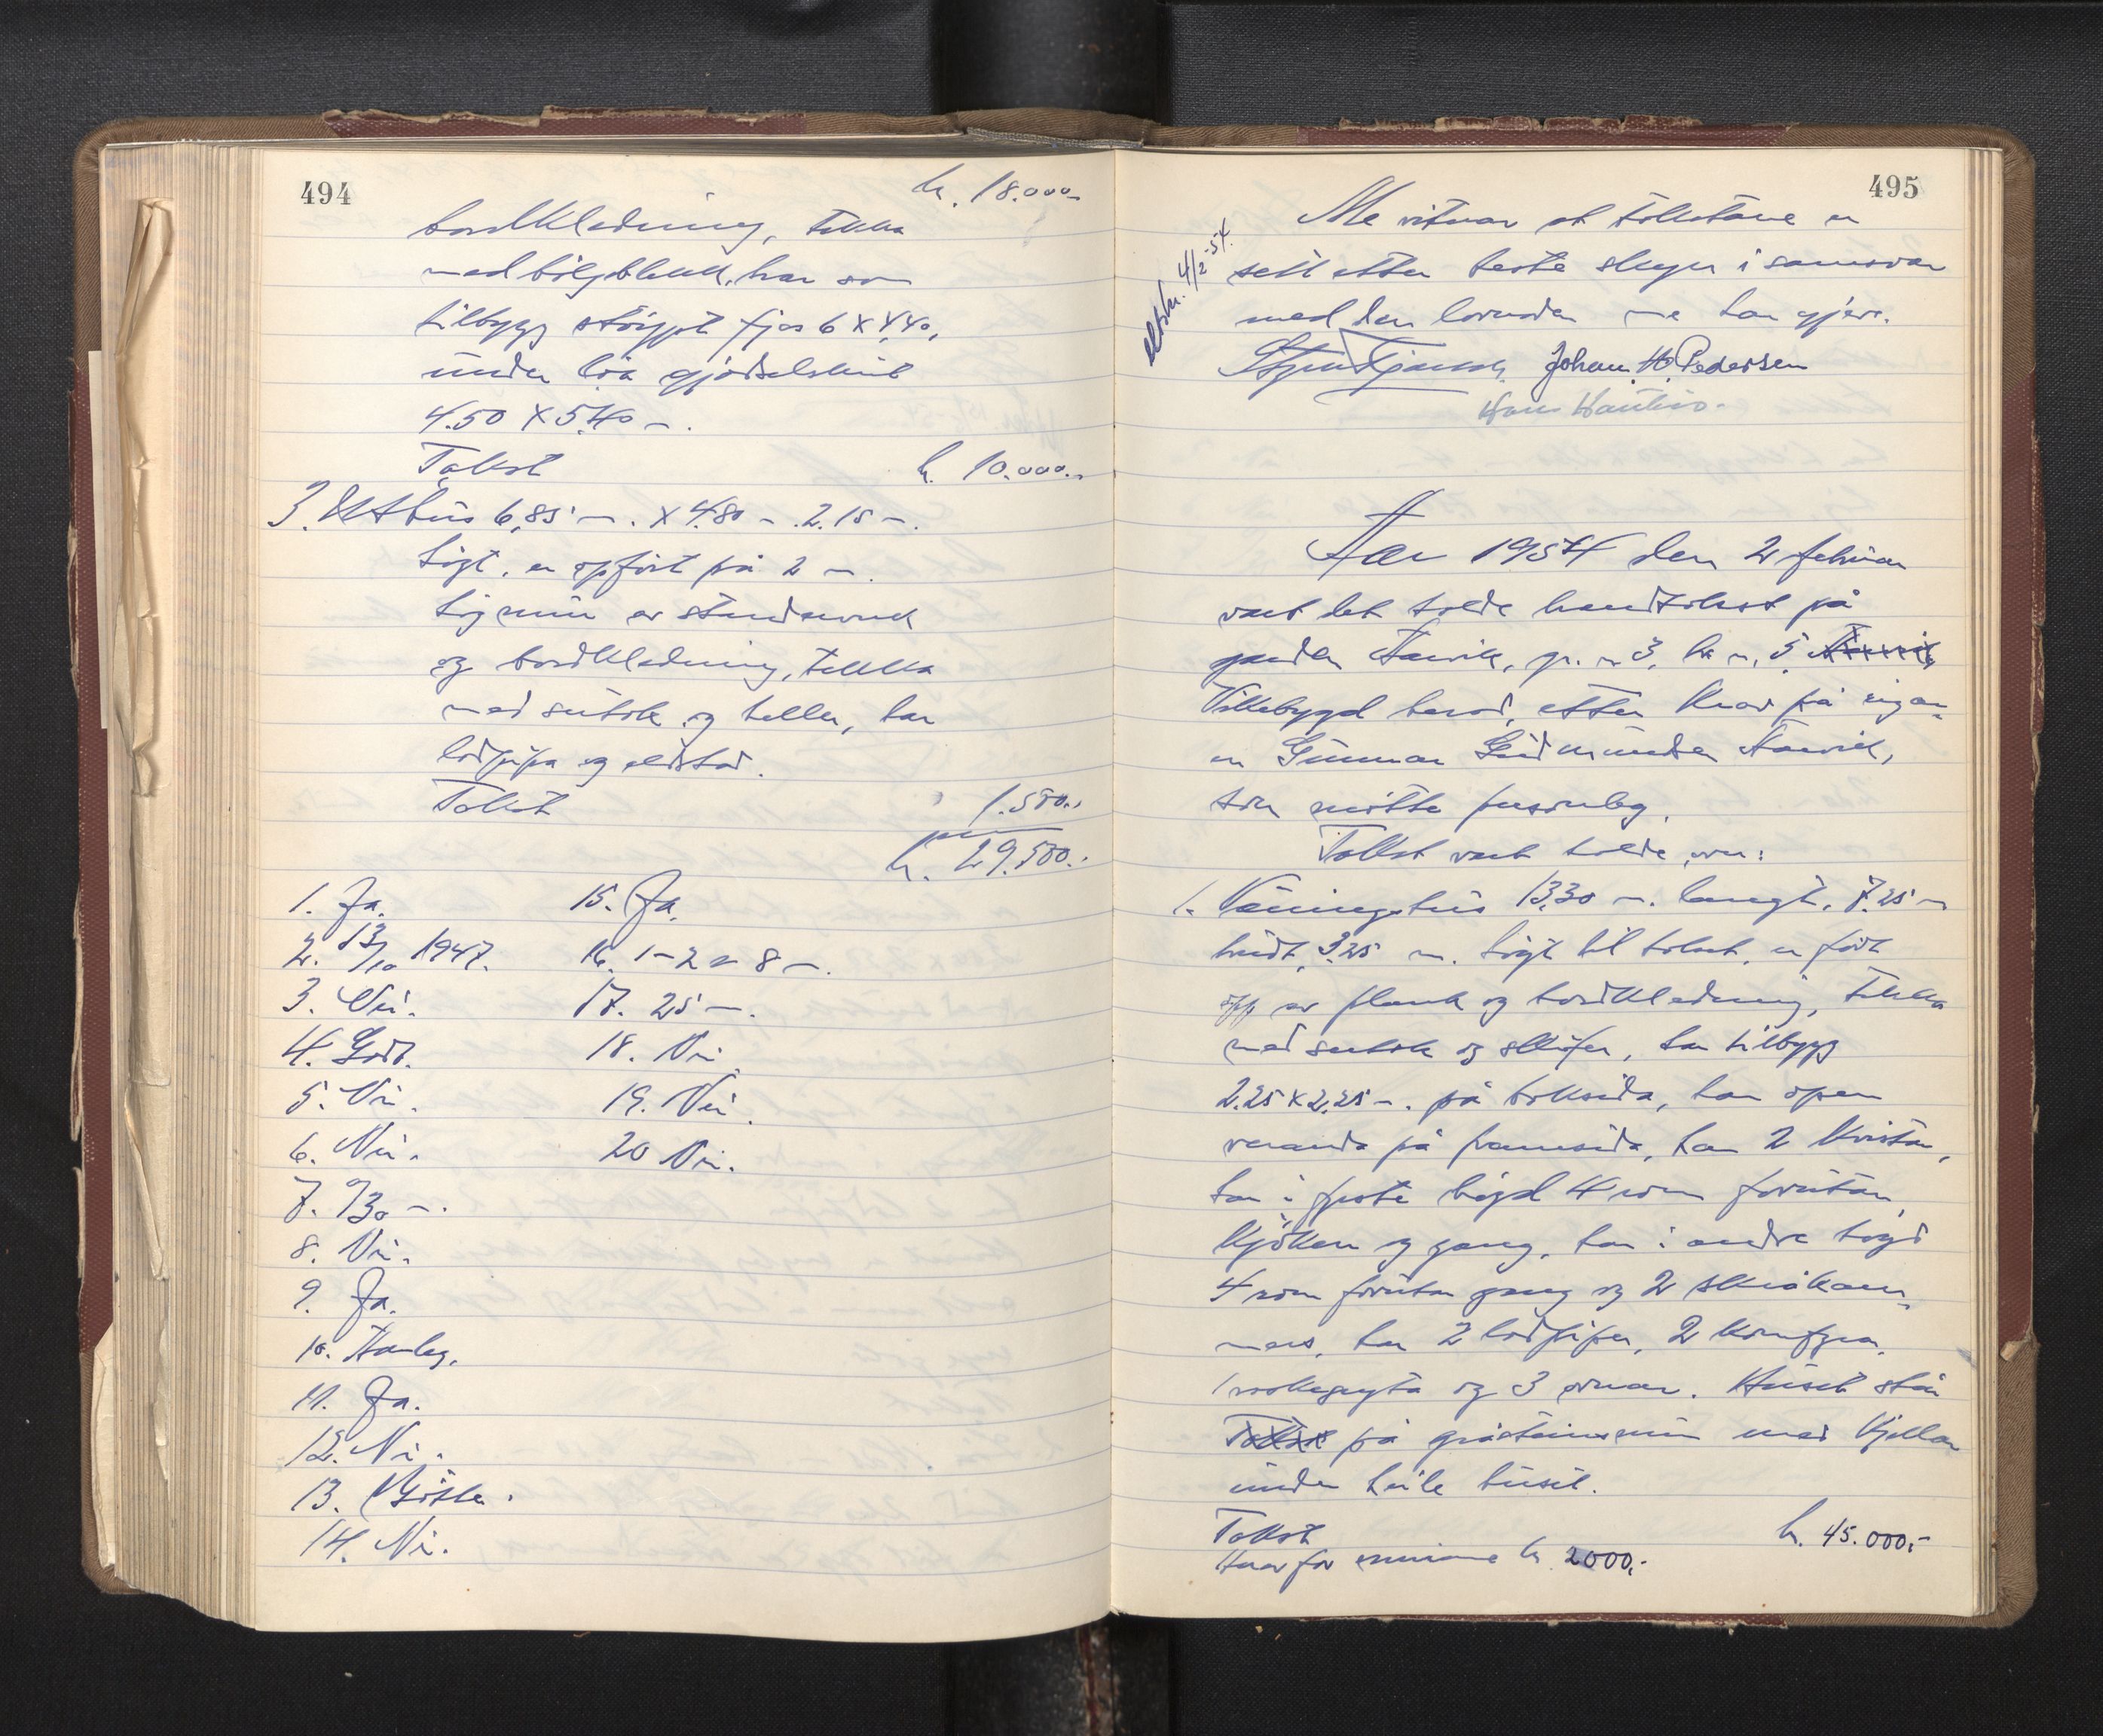 494
kr. 18.000.-
bordkledning, tekka
med bølgeblekk, har som
tilbygg støypt fjos 6 x 4,40,
under løa gjødselskut
4.50 x 5.40 m.
Takst kr. 10.000.-
3. Eldhus 6,85 m. x 4.80 m. 2.15 m.
høgt, er opført på 2 m.
høg mur av stenderverk
og bordkledning, tekka
med sutak og heller, har
lodpipa og eldstad.
Takst 1.500.-
kr. 29.500.-
1. Ja.
2. 13/10 1947.
3. Nei.
4. Godt.
5. Nei.
6. Nei.
7. 9/30 m.
8. Nei.
9. Ja.
10. Hauleg.
11. Ja.
12. Nei.
13. Bøste.
14. Nei.
15. Ja.
16. 1-2 og 8 m.
17. 25 m.
18. Nei
19. Nei.
20 Nei.
495
Me vitnar at takstane er
sett etter beste skyn i samsvar
med den lovnaden me har gjeve.
Johan H. Pedersen
Hans
4/2-54.
Aar 1954 den 2 februar
vart det halde branntakst på
garden Aarvik, gr. n 3, br n. 5 Aarvik
Vikebygd herad, etter krav på eigar-
en Gunnar Gudmundsen Aarvik,
som møtte personleg.
Takst vart halde over:
1. Våningshus 13,30 m. langt, 7.25 m
breidt, 3.25 m. høgt til taket, er ført
opp av plank og bordkledning, tekka
med sutak og skifer, har tilbygg
2.25 x 2,25 m. på baksida, har open
veranda på framsida, har 2 kvistar,
har i fyrste høgd 4 rom forutan
kjøken og gang, har i andre høgd
4 rom forutan gang og 2 skråkam-
mers, har 2 lodpiper, 2 komfyrar,
1 vaskegryta og 3 omnar. Huset står
Takst på gråsteinsmur med kjellar
under heile huset.
Takst kr. 45.000,-
Hvor for murane kr 2000,-